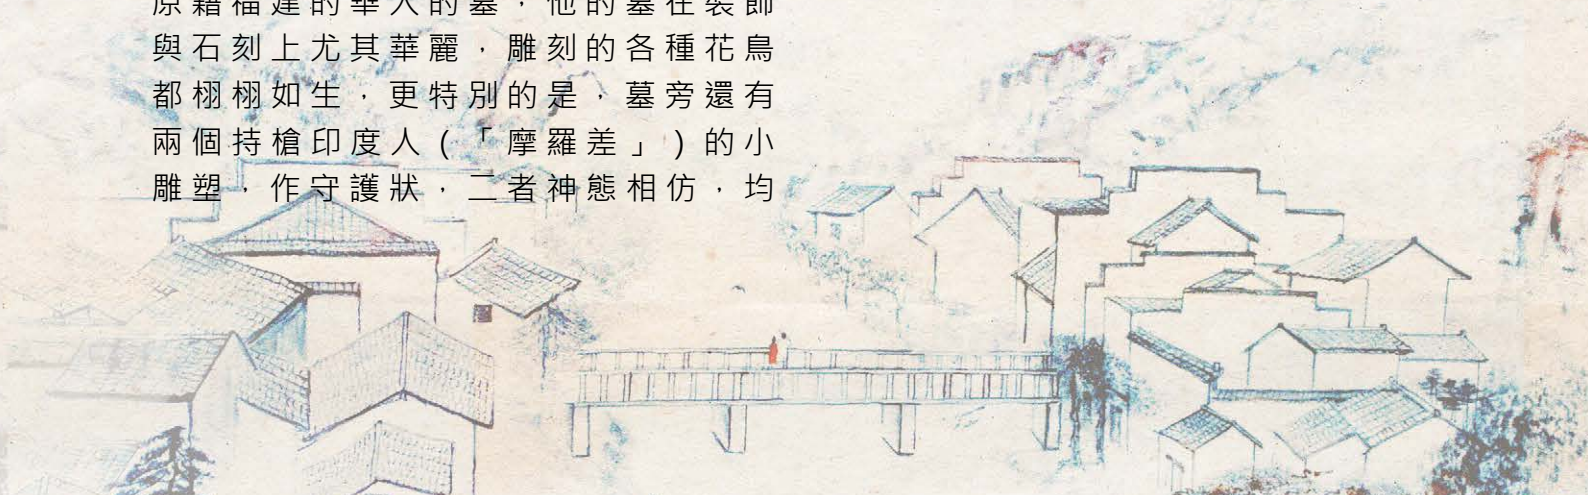 原籍福建的華人的墓，他的墓在裝飾
與石刻上尤其華麗，雕刻的各種花鳥
都栩栩如生，更特別的是，墓旁還有
兩個持槍印度人(「摩羅差」)的小
雕塑，作守護狀，二者神態相仿，均